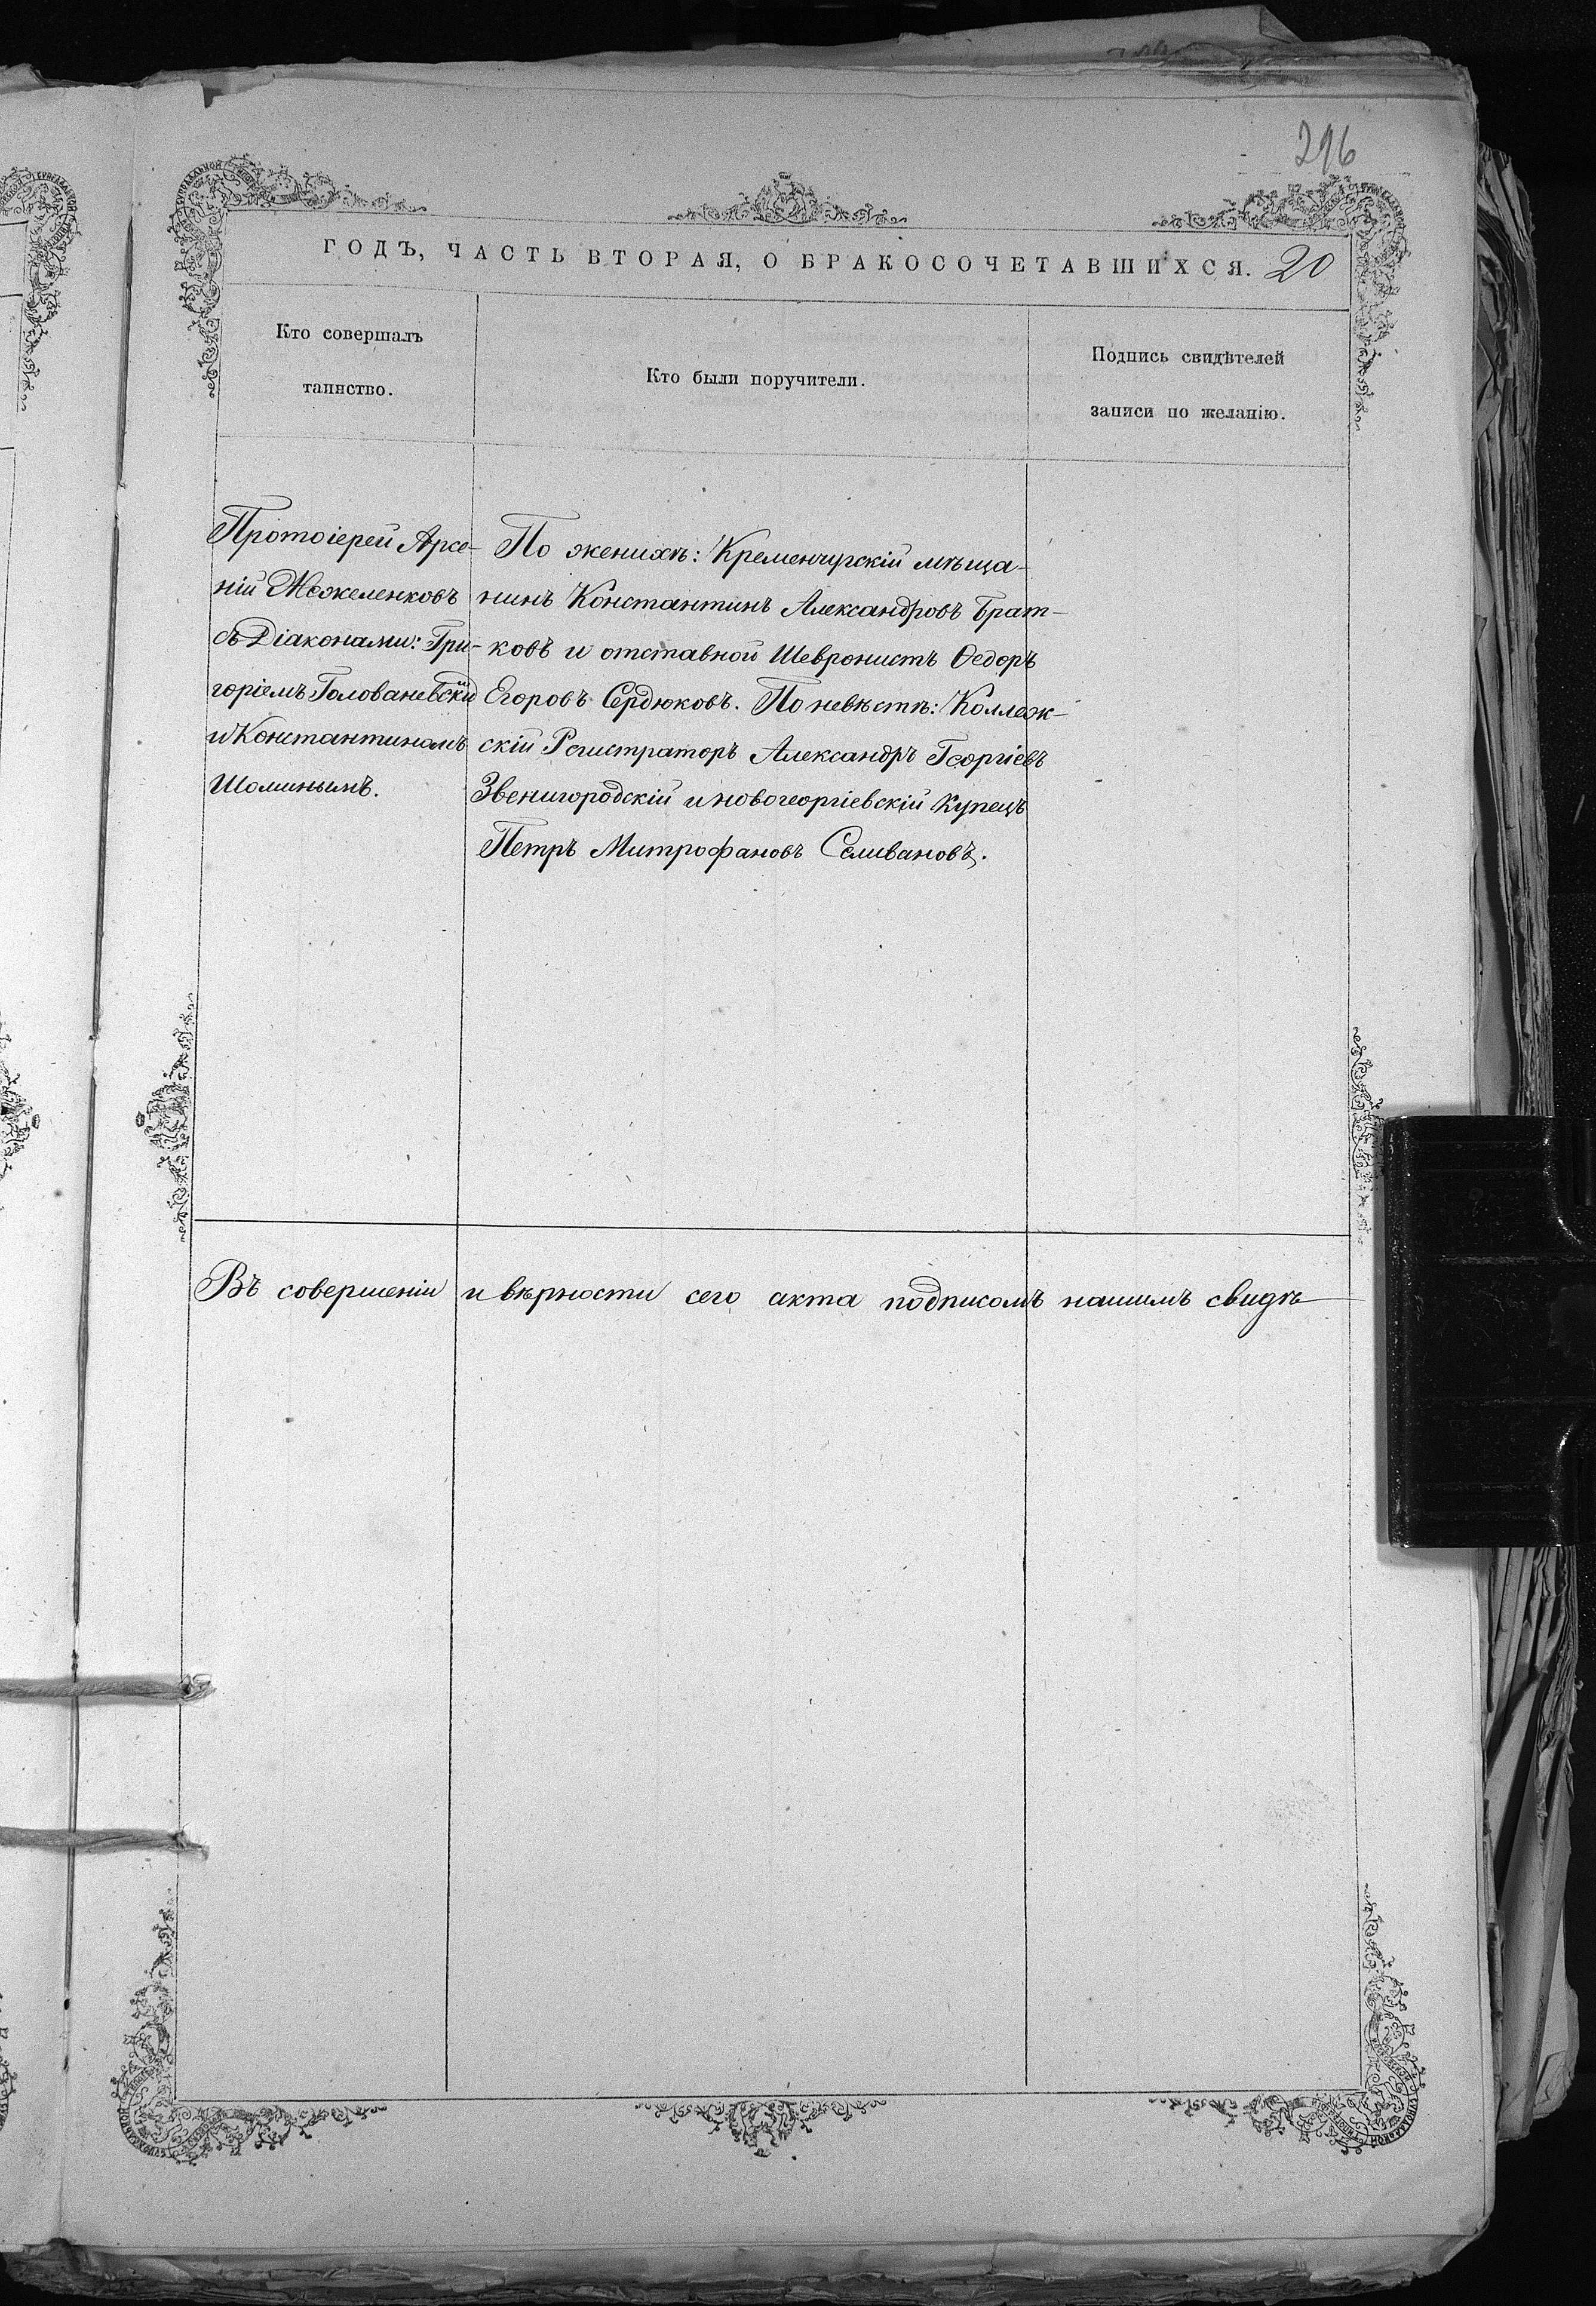 296
ГОДЪ, ЧАСТЬ ВТОРАЯ, О БРАКОСОЧЕТАВШИХСЯ. 20
Кто совершалъ
таинство.
Кто были поручители.
Подпись свидѣтелей
записи по желанію.
Протоіерей Арсе-
ній Можеленковъ
съ Діаконами: Гри-
горіемъ Голованевскій
и Константиномъ
Шоминымъ.
По женихѣ: Кременчугскій мѣща-
нинъ Константинъ Александровъ Брат-
ковъ и отставной Шевронистъ Ѳедоръ
Егоровъ Сердюковъ. По невѣстѣ: Коллеж-
скій Регистраторъ Александръ Георгіевъ
Звенигородскій и новогеоргіевскій Купецъ
Петръ Митрофановъ Селивановъ.
Въ совершеніи и вѣрности сего акта подписомъ нашимъ свидѣ